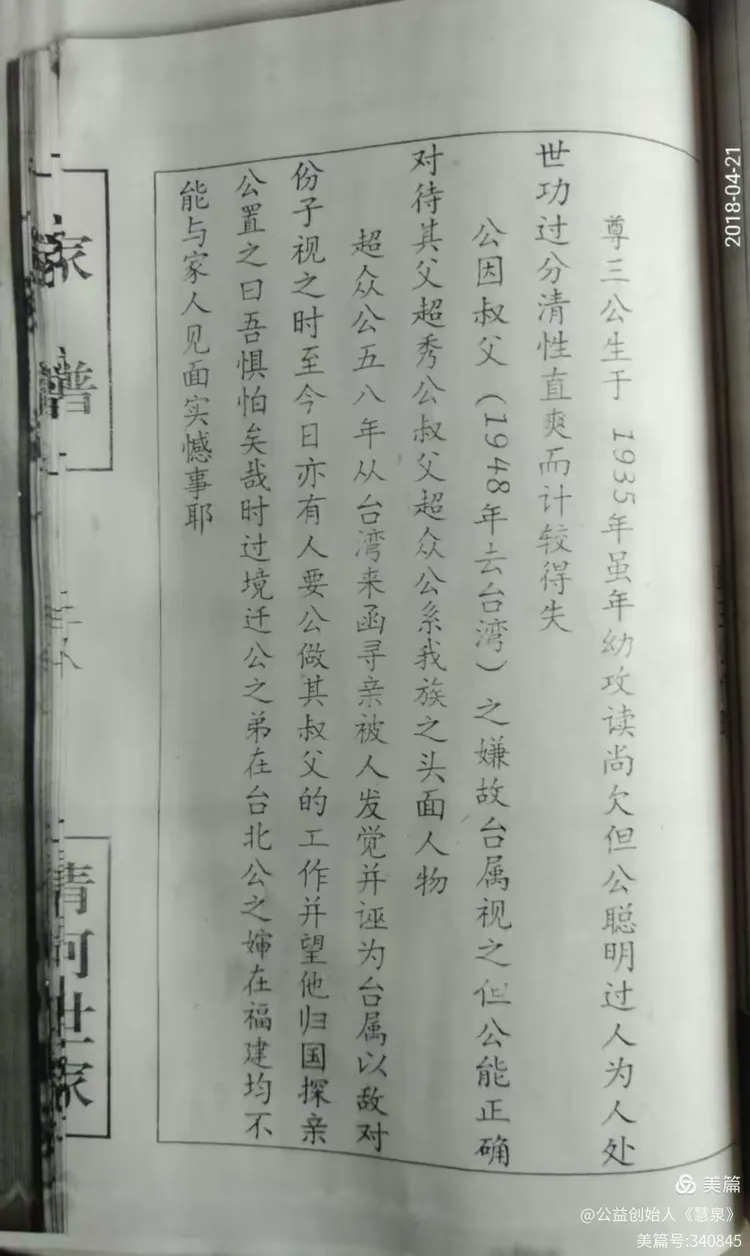 尊三公生于1935年虽年幼攻读尚欠但公聪明过人为人处
世功过分清性直爽而计较得失
公因叔父（1948年去台湾）之嫌故台属视之但公能正确
对待其父超秀公叔父超众公系我族之头面人物
超众公五八年从台湾来函寻亲被人发觉并诬为台属以敌对
份子视之时至今日亦有人要公做其叔父的工作并望他归国探亲
公置之曰吾惧怕矣哉时过境迁公之弟在台北公之婶在福建均不
能与家人见面实憾事耶
家谱
清河世家
2018-04-21
美篇
@公益创始人《慧泉》
美篇号:340845